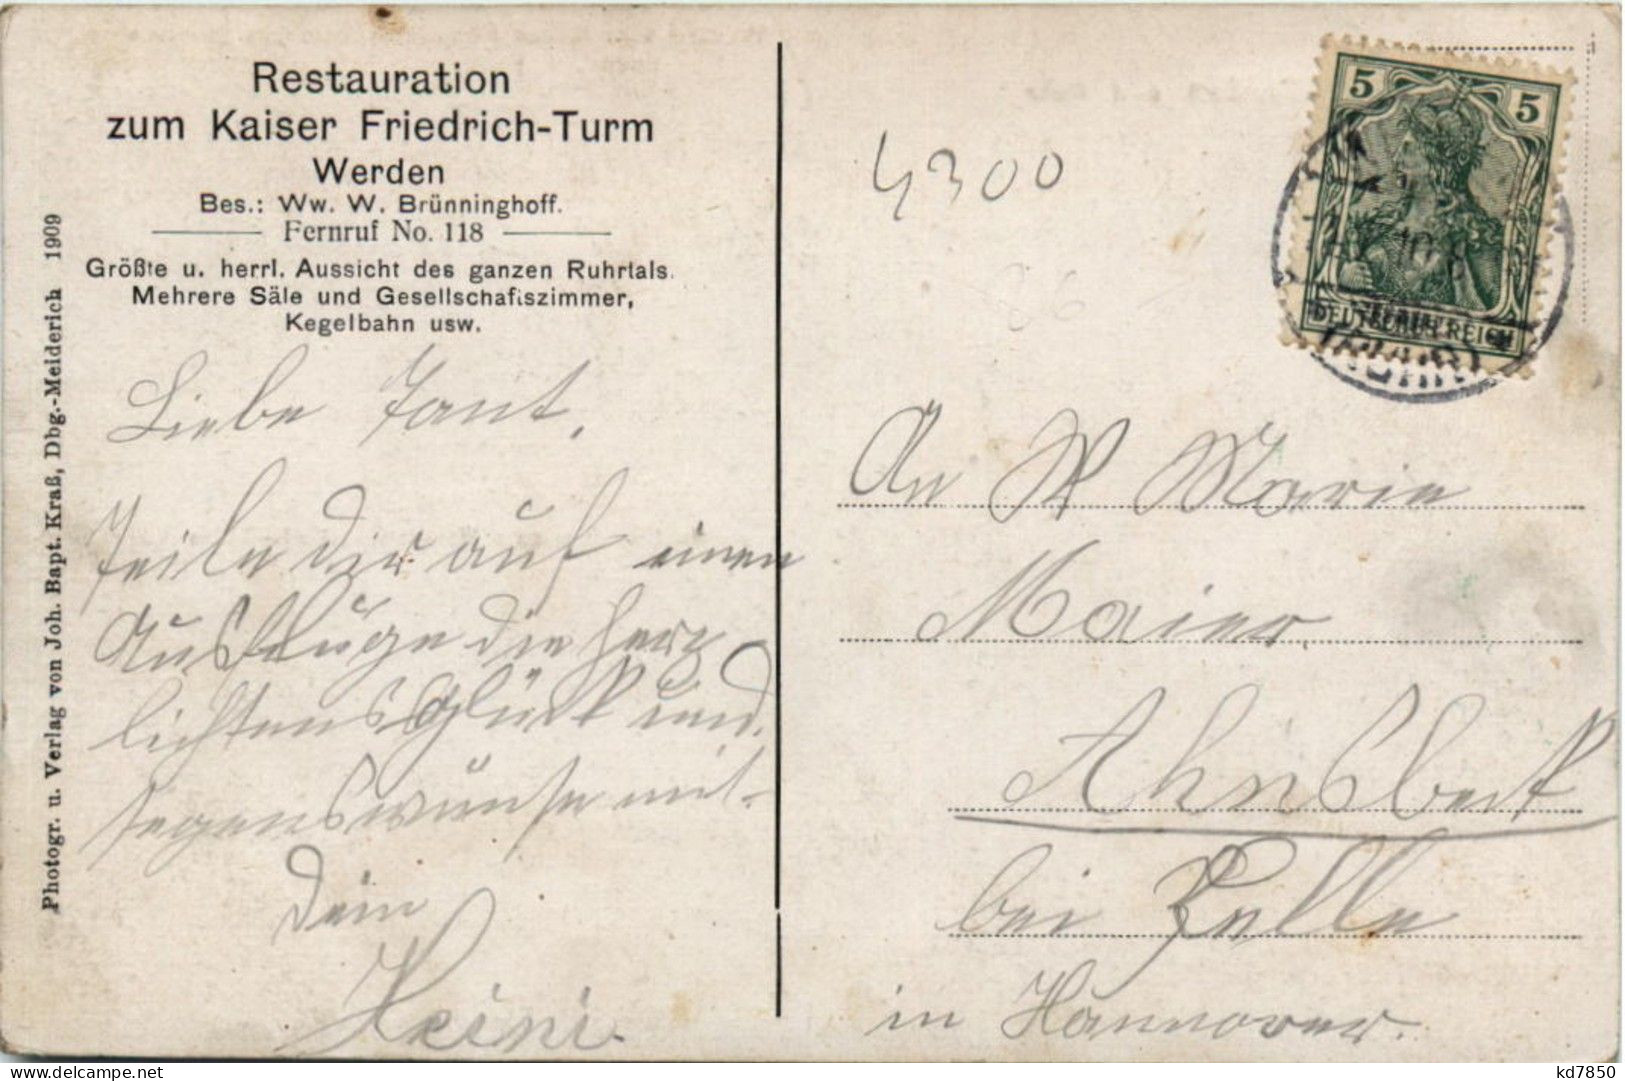 Restauration
zum Kaiser Friedrich-Turm
Werden
Bes.: Ww. W. Brünninghoff.
Fernruf No. 118
Größte u. herrl. Aussicht des ganzen Ruhrtals.
Mehrere Säle und Gesellschaftszimmer,
Kegelbahn usw.
Photogr. u. Verlag von Joh. Bapt. Kraß, Dbg.-Meiderich 1909
Liebe Tant,
Teile dir auf einen
Ausfluge die herz
lichtens Glück und
segenswünse mit.
dein
Heini.
4300
26
5 5
DEUTSCHES REICH
(RUHR)
An W Marie
Maier.
Ahnsbeck
bei Zelle
in Hannover.
kd7850